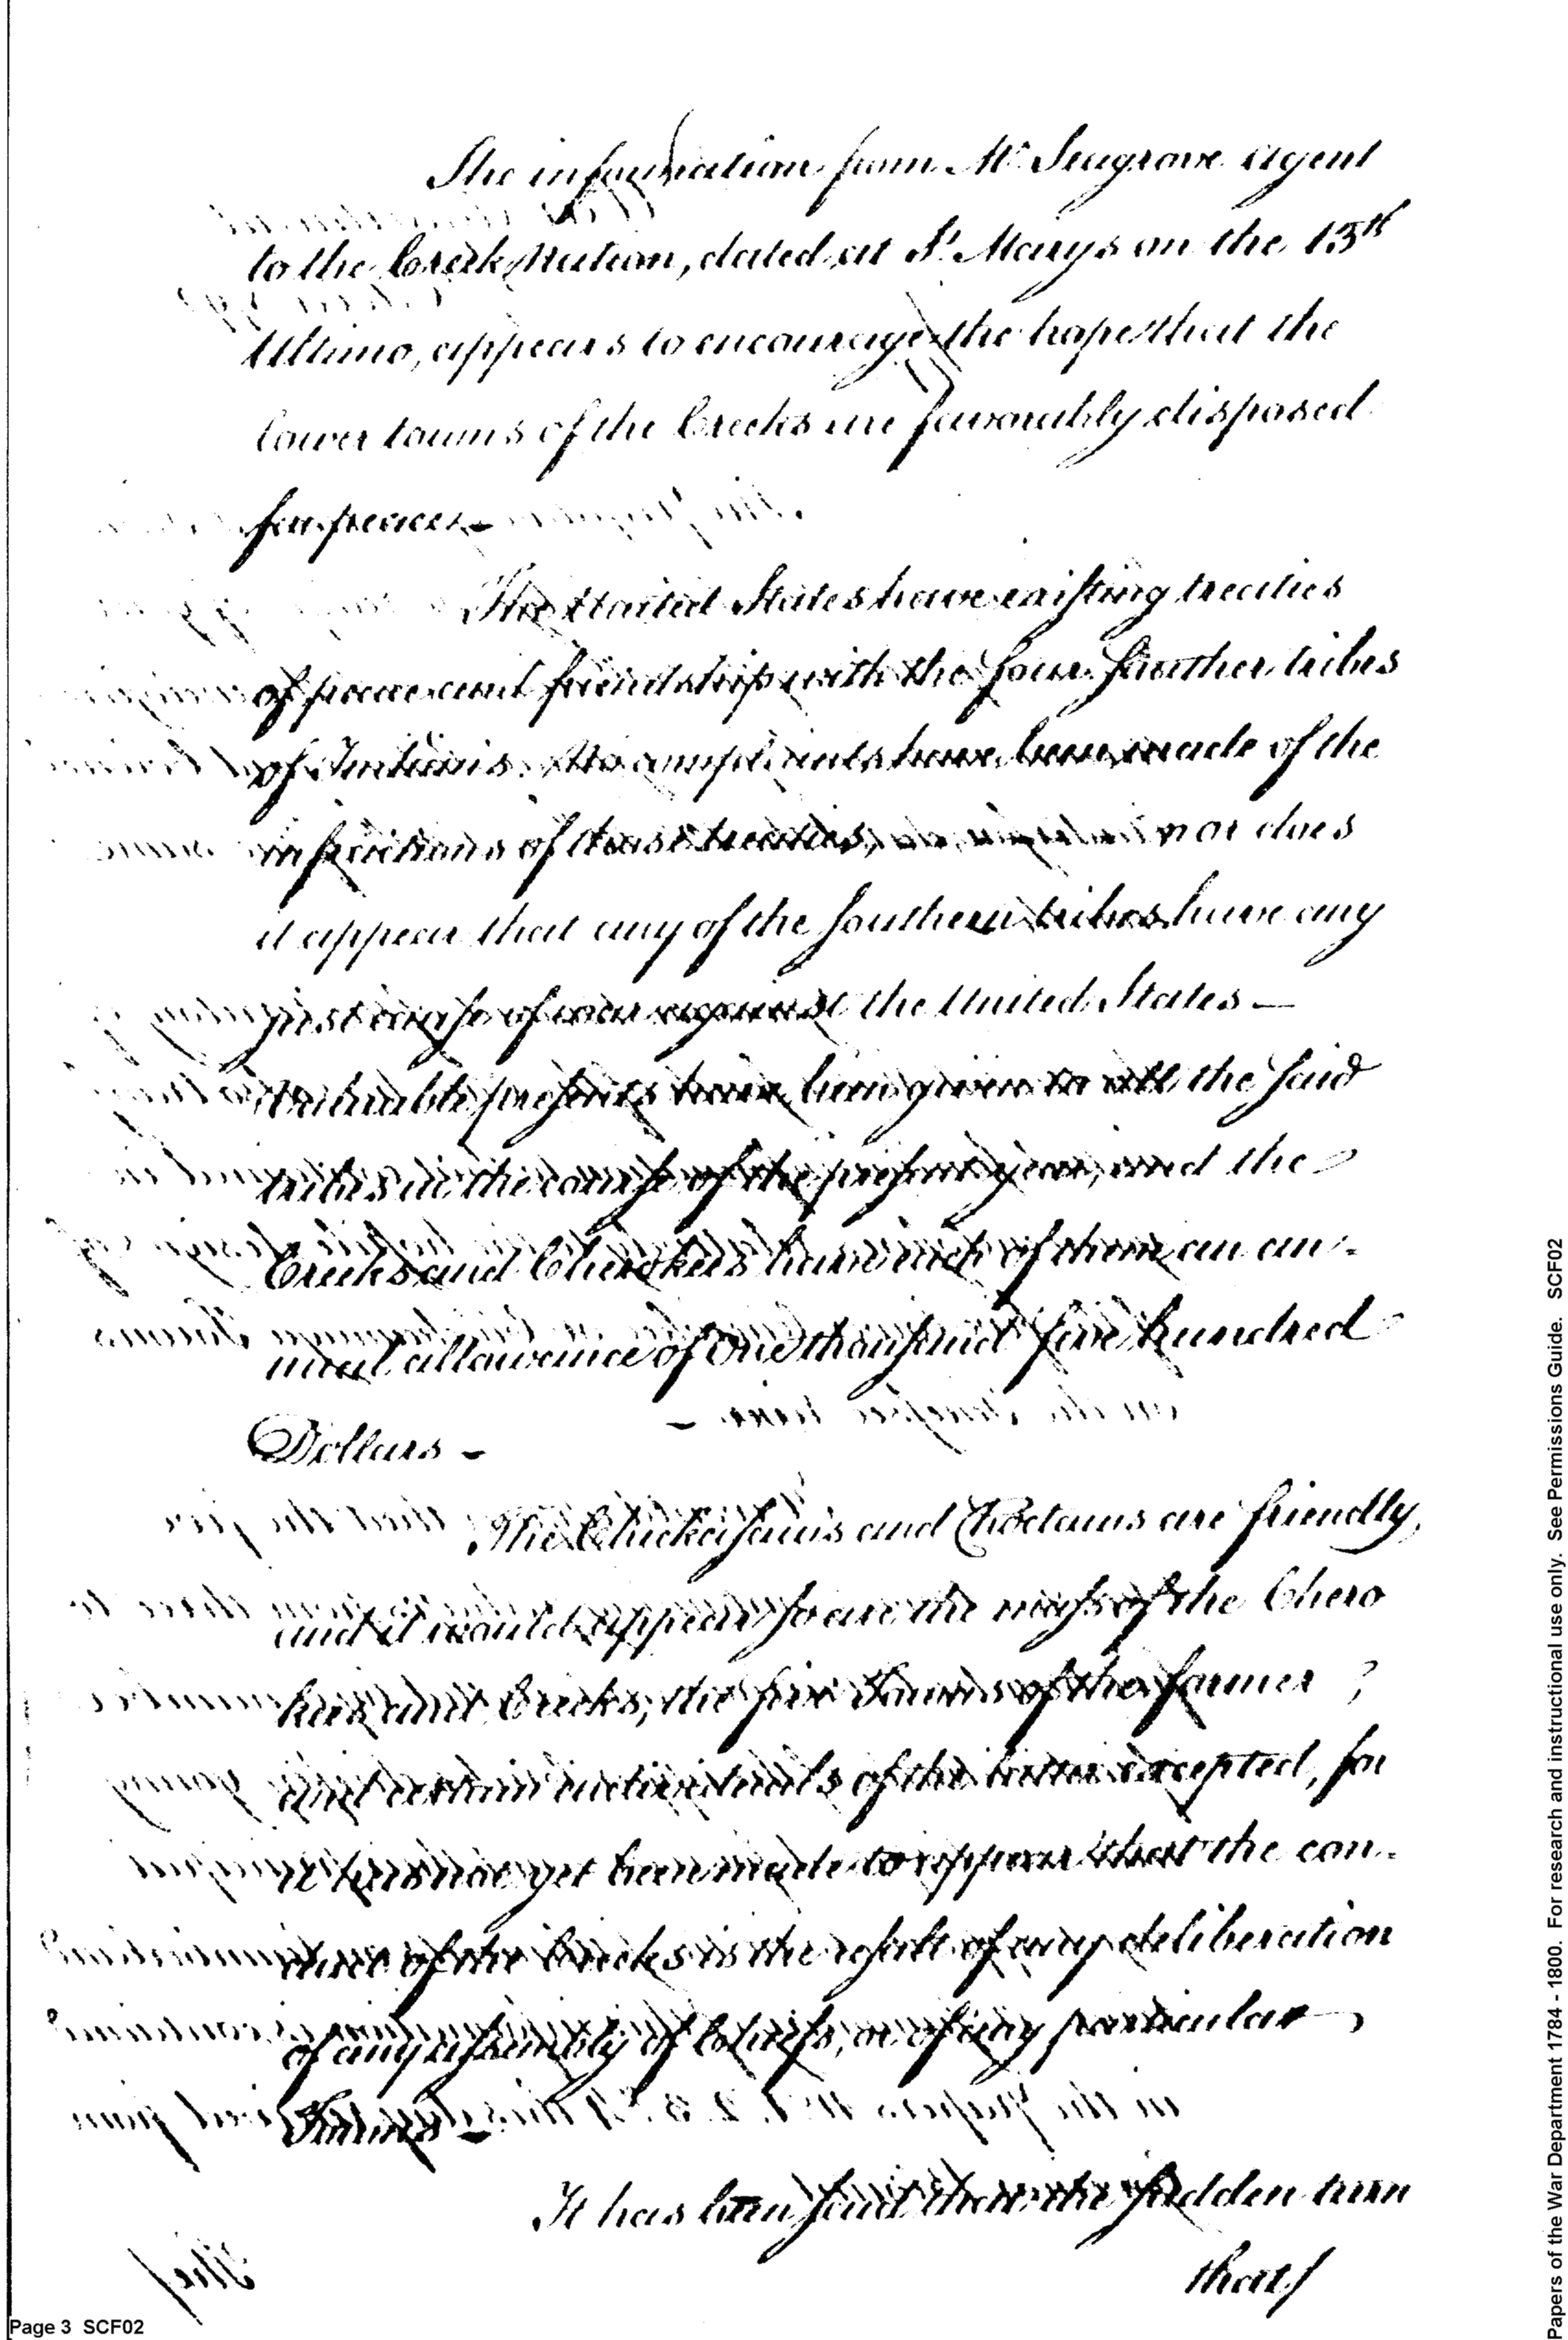 The information from Mr. Seagrove agent
to the Creek Nation, dated at St. Marys on the 13th
Ultimo, appears to encourage the hope that the
lower towns of the Creeks are favorably disposed
for peace. –
The United States have existing treaties
of peace and friendship with the four Southern tribes
of Indians. No complaints have been made of the
infractions of those treaties, nor does
it appear that any of the Southern tribes have any
just cause of war against the United States —
Valuable presents have been given to all the said
tribes in the course of the present year, and the
Creeks and Cherokees have each of them an an-
nual allowance of One thousand five hundred
Dollars –
The Chickasaws and Choctaws are friendly,
and it would appear so are the mass of the Chero
kees and Creeks, the five Towns of the former
and certain individuals of the latter excepted, for
it has not yet been made to appear that the con-
duct of the Creeks is the result of any deliberation
of any assembly of Chiefs, or of any particular
Towns –
It has been said that the sudden turn
that/
Page 3 SCF02
Papers of the War Department 1784 - 1800. For research and instructional use only. See Permissions Guide. SCF02